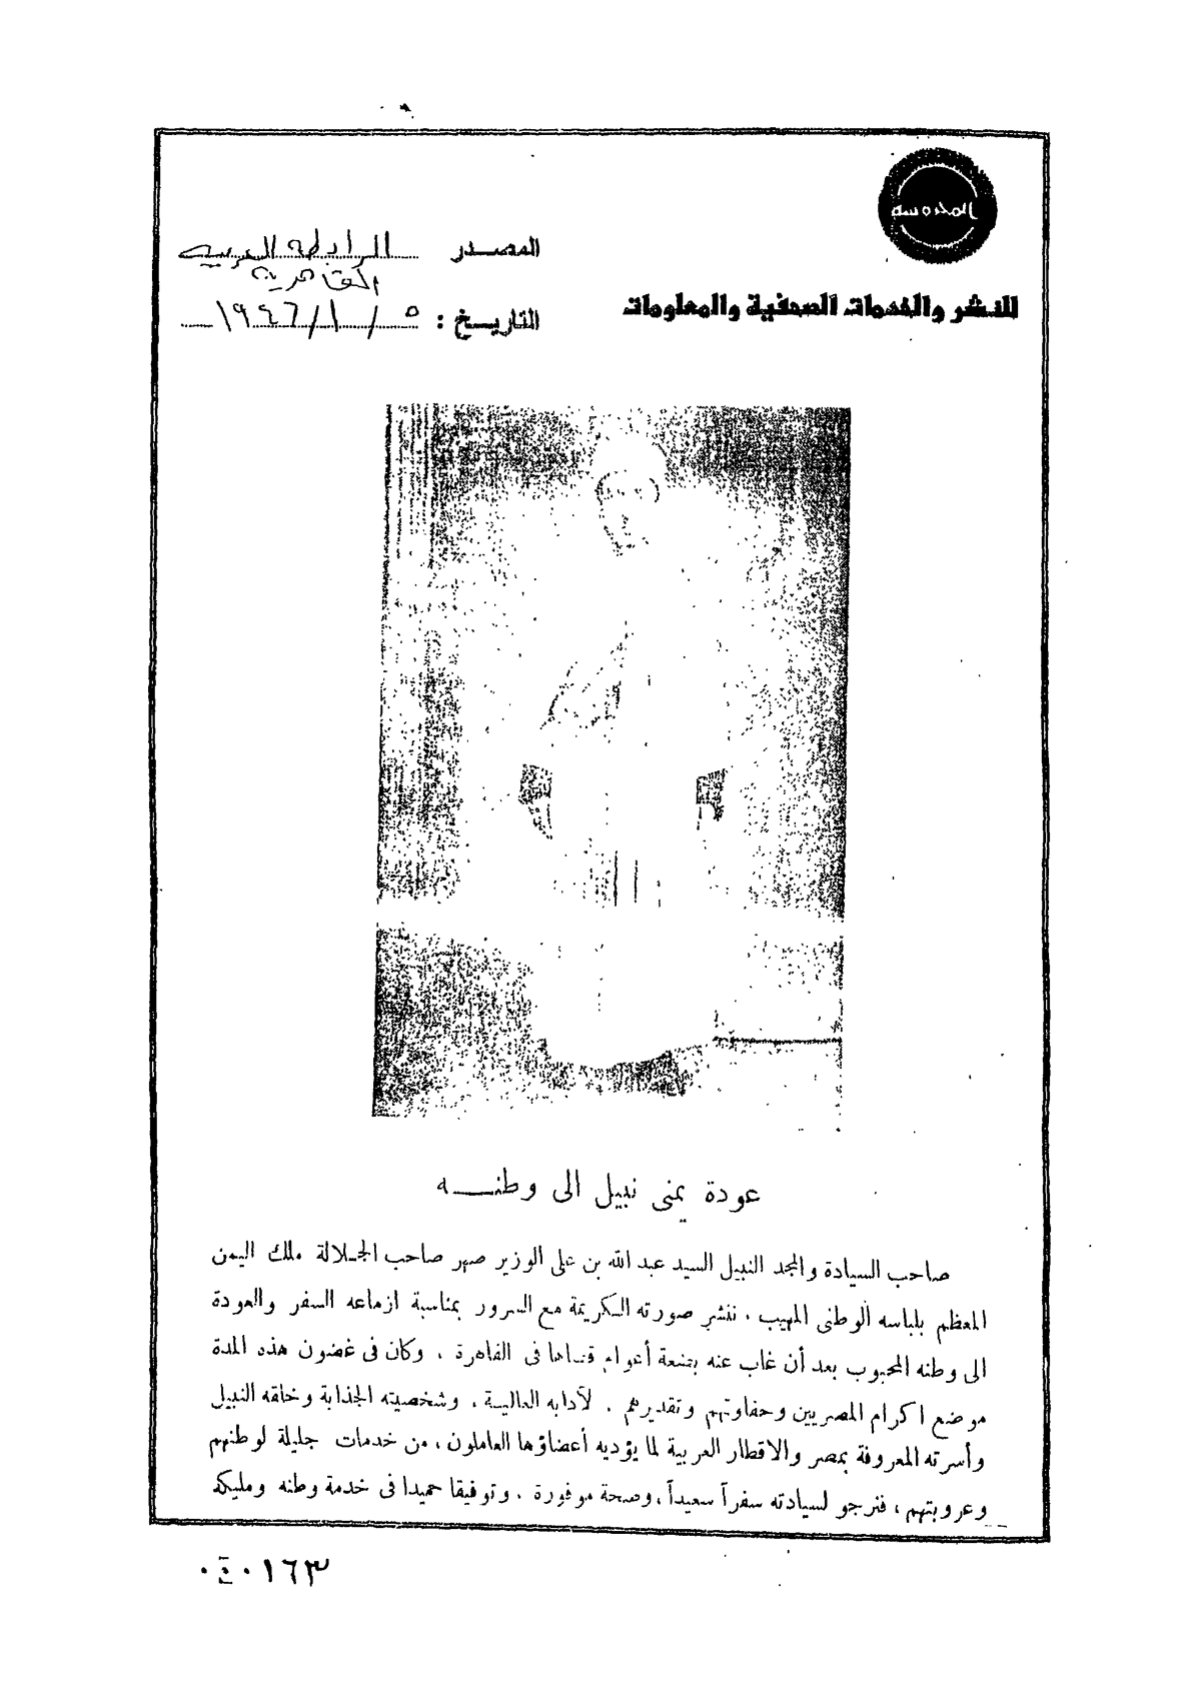 المصدر الرابطة العربية
القاهرية
للنشر والخدمات الصحفية والمعلومات
التاريخ : ٥ / ١ / ١٩٤٦
عودة يمنى نبيل الى وطنـــه
صاحب السيادة والمجد النبيل السيد عبد الله بن على الوزير صهر صاحب الجـلالة ملك اليمن
المعظم بلباسه الوطنى المهيب . ننشر صورته الكريمة مع السرور بمناسبة ازماعه السفر والعودة
الى وطنه المحبوب بعد أن غاب عنه بضعة أعوام قضاها فى القاهرة . وكان فى غضون هذه المدة
موضع اكرام المصريين وحفاوتهم وتقديرهم . لآدابه العالية . وشخصيته الجذابة وخلقه النبيل
وأسرته المعروفة بمصر والاقطار العربية لما يؤديه أعضاؤها العاملون ، من خدمات جليلة لوطنهم
وعروبتهم ، فنرجو لسيادته سفراً سعيداً ، وصحة موفورة . وتوفيقا حميدا فى خدمة وطنه ومليكه